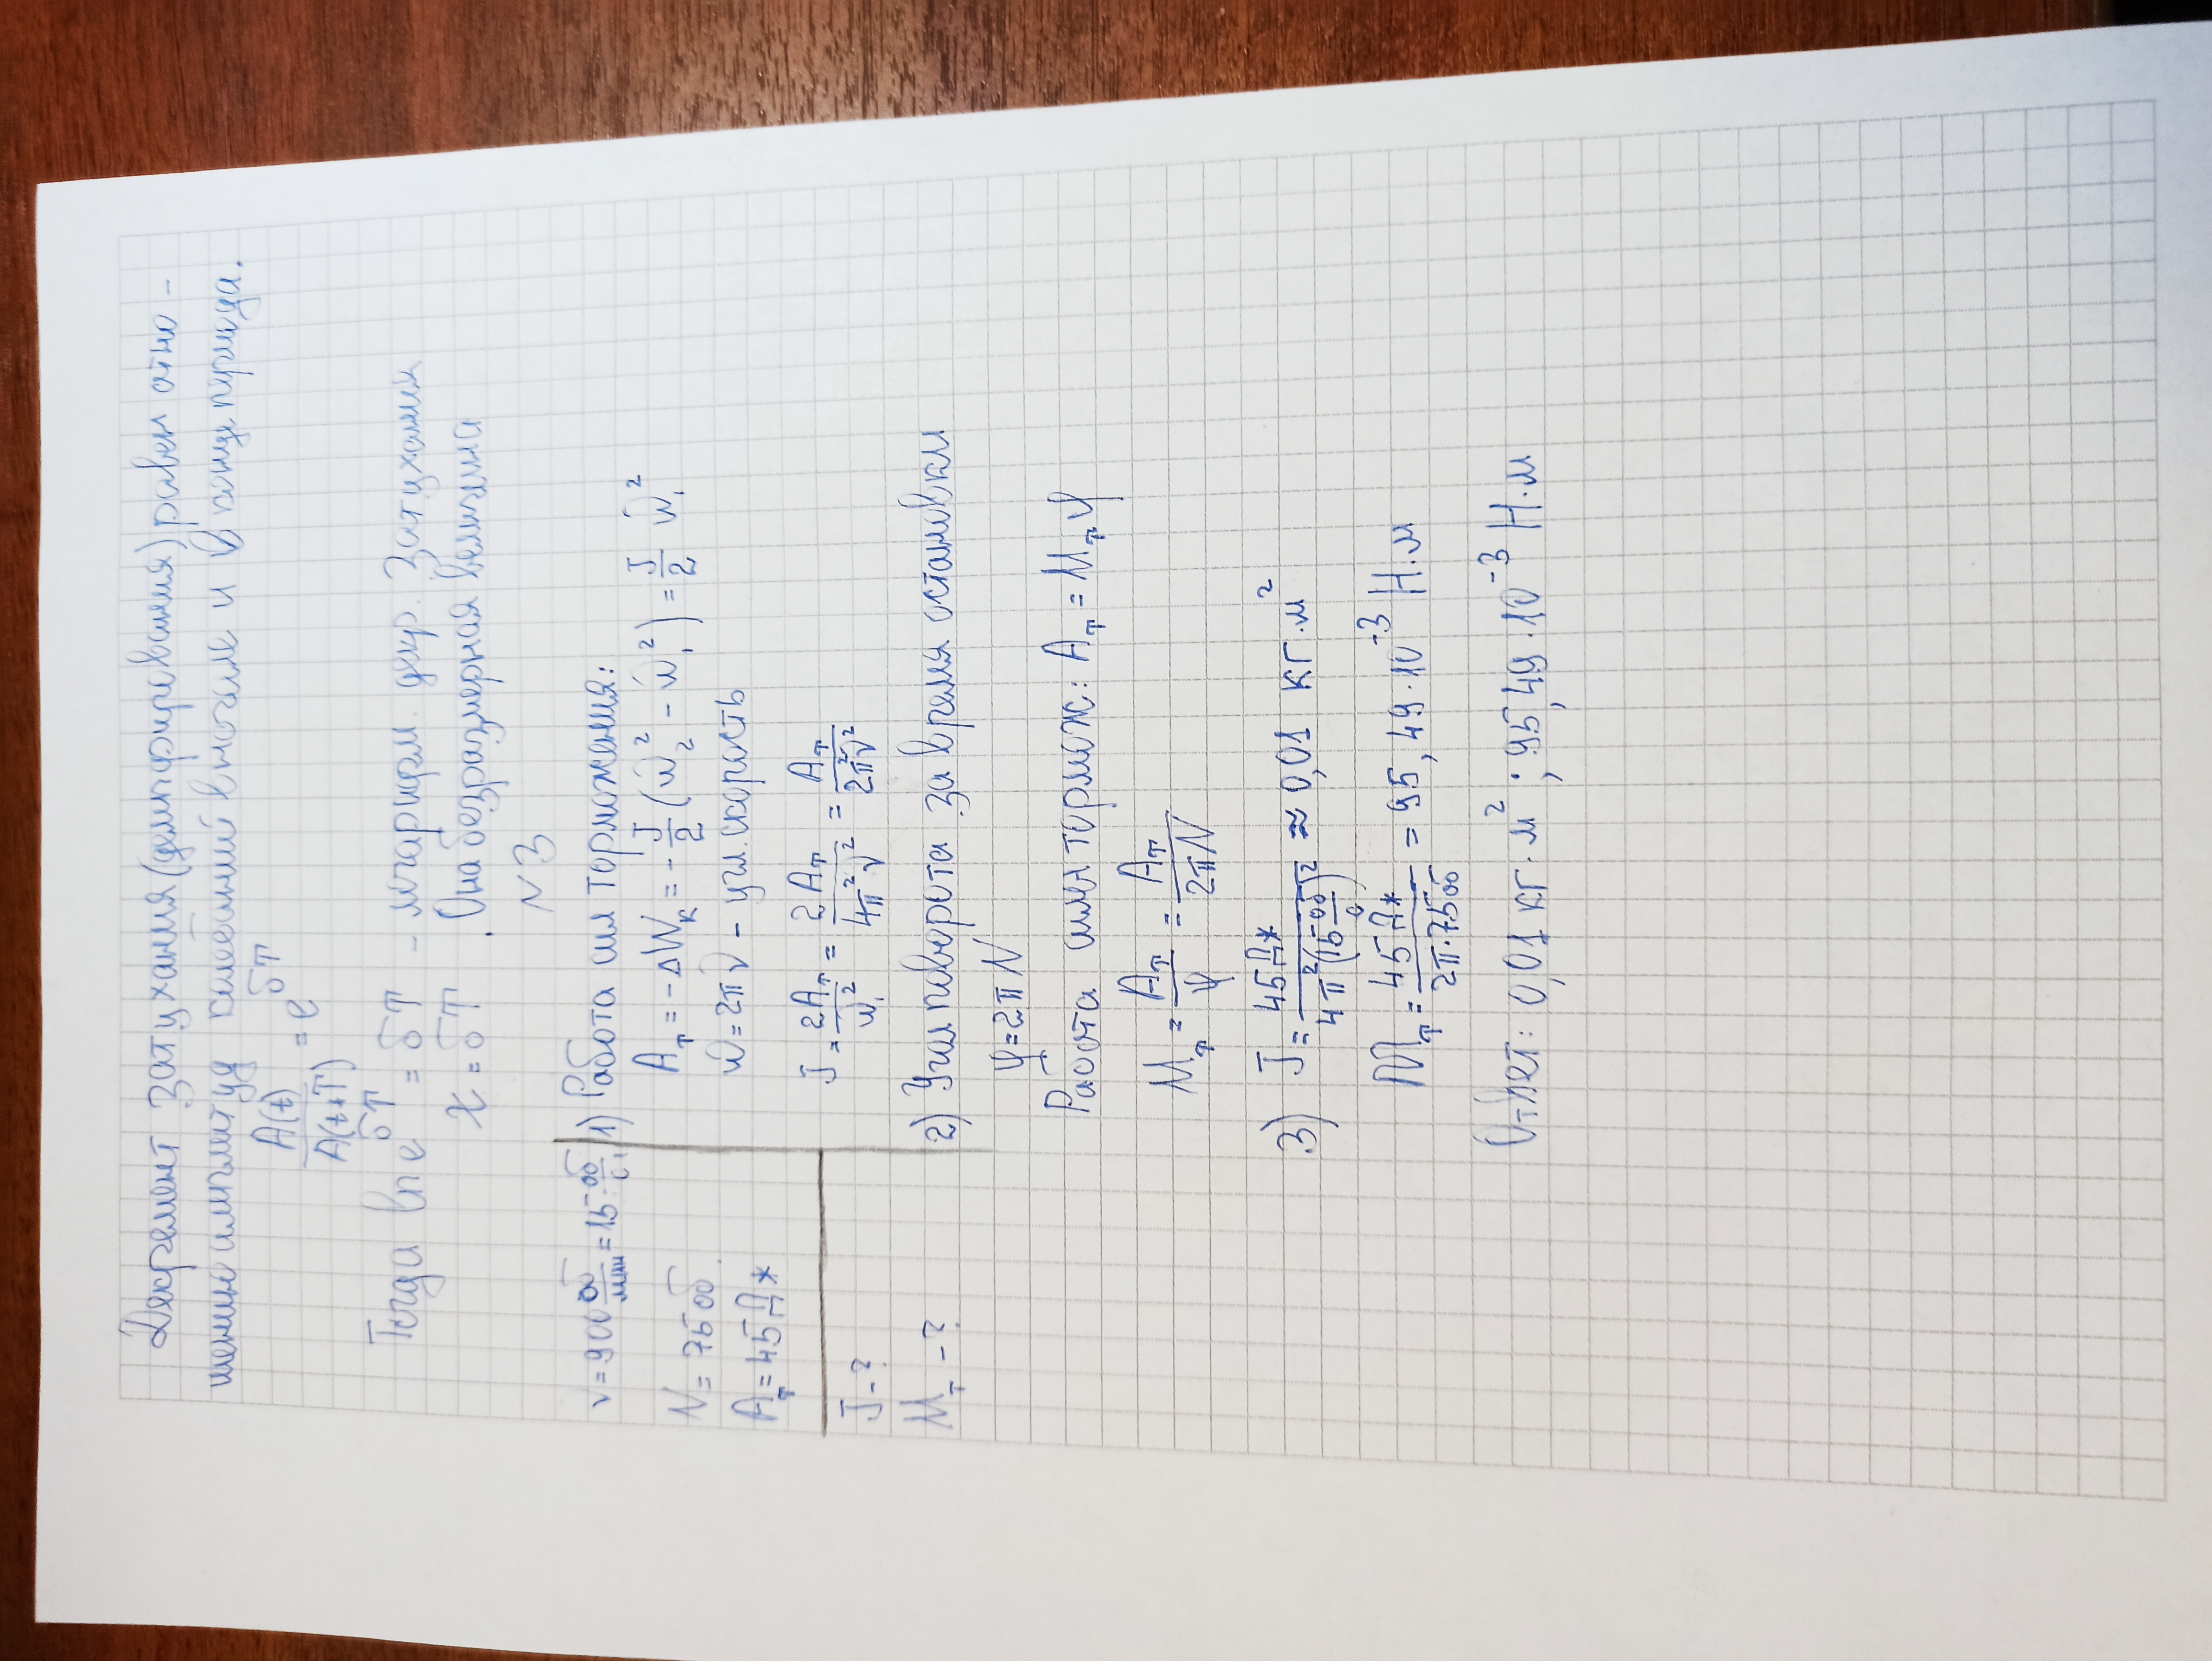 Декремент затухания (демпфирования) равен отно-
шению амплитуд колебаний в начале и в конце периода.
A(t)/A(t+T) = e^δT
Тогда ln e^δT = δT - логарифм. декр. затухания
χ = δT . Она безразмерная величина
N3
ν = 900 об/мин = 15 об/с
N = 75 об.
Aт = 45 Дж
J - ?
Mт - ?
1) Работа сил торможения:
Aт = -ΔWк = - J/2 (ω₂² - ω₁²) = J/2 ω₁²
ω = 2πν - угл. скорость
J = 2Aт/ω₁² = 2Aт/4π²ν² = Aт/2π²ν²
2) Угол поворота за время остановки
φ = 2πN
Работа силы тормож: Aт = Mт φ
Mт = Aт/φ = Aт/2πN
3) J = 45 Дж/4π²(15 об/с)² ≈ 0,01 кг·м²
Mт = 45 Дж/2π·75 об = 95,49·10⁻³ Н·м
Ответ: 0,01 кг·м² ; 95,49·10⁻³ Н·м